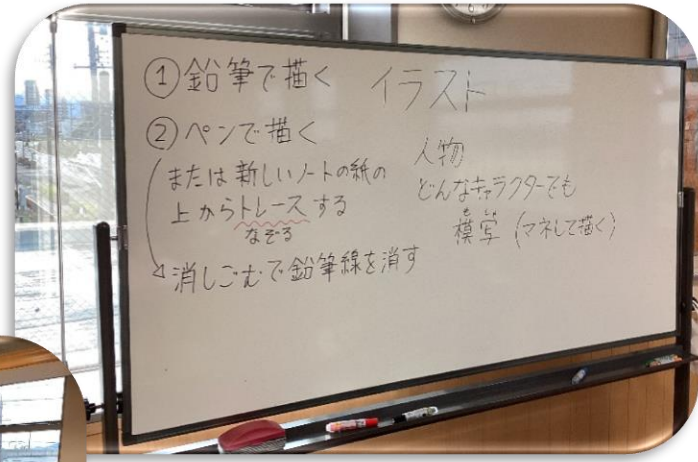 ①鉛筆で描く
イラスト
②ペンで描く
または新しいノートの紙の
上からトレースする
なぞる
消しごむで鉛筆線を消す
人物
どんなキャラクターでも
も しゃ
模写(マネして描く)